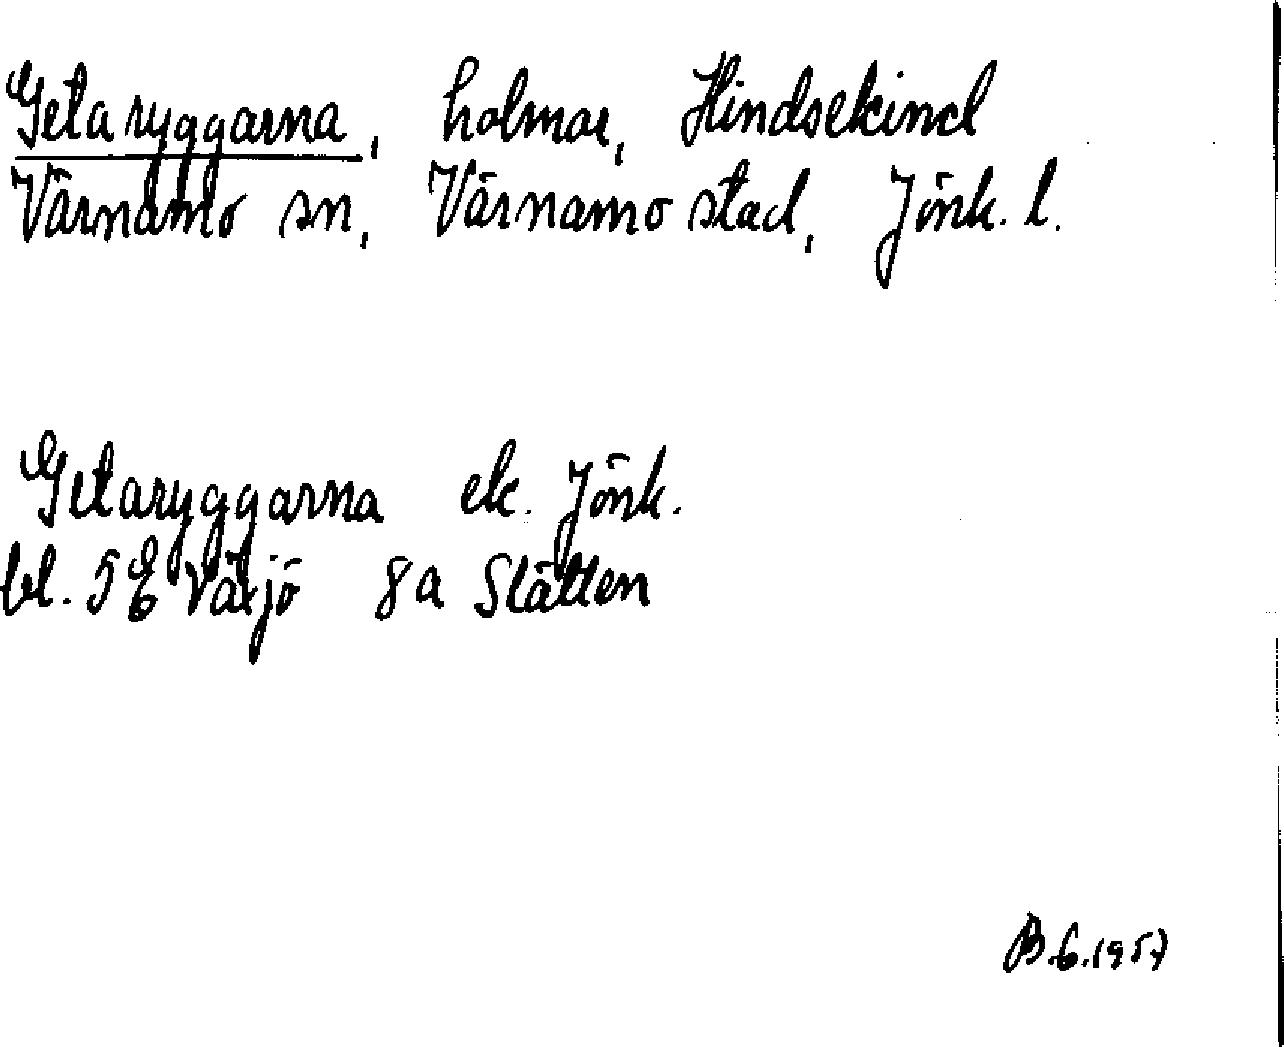 Getaryggarna, holmar, Hindsekind
Värnamo sn, Värnamo stad, Jönk. l.
Getaryggarna ek. Jönk.
bl. 5E Växjö 8a Slätten
B.G.1957